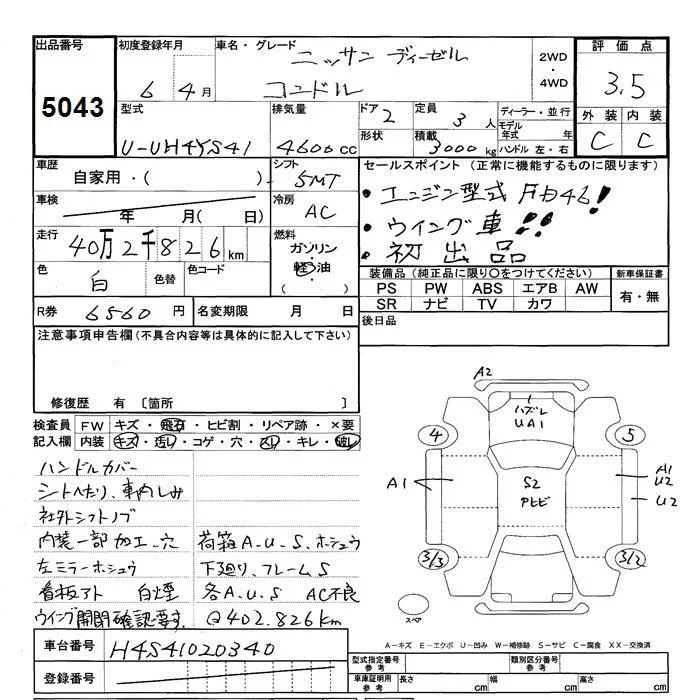 出品番号
5043
初度登録年月
6 4月
車名・グレード
ニッサン ディーゼル
コンドル
2WD
・
4WD
評価点
3.5
外装 内装
C C
型式
U-UH4YS41
排気量
4600 cc
ドア 2
形状
定員 3 人
積載 3000 kg
ディーラー・並行
モデル年式 年
ハンドル 左・右
車歴
自家用・( )
シフト
5MT
車検
年 月( 日)
冷房
AC
走行
40万2千826km
燃料
ガソリン
・
軽油
・( )
色
白
色替
色コード
R券 6560円
名変期限 月 日
セールスポイント(正常に機能するものに限ります)
・エンジン型式 FD46!
・ウイング車!!
・初出品
装備品(純正品に限り○をつけてください)
PS PW ABS エアB AW
SR ナビ TV カワ
新車保証書
有・無
後日品
注意事項申告欄(不具合内容等は具体的に記入して下さい)
修復歴 有 〔箇所 〕
検査員記入欄
FW キズ・飛石・ヒビ割・リペア跡・×要
内装 キズ・汚レ・コゲ・穴・スレ・キレ・破レ
ハンドルカバー
シートへたり、車内しみ
社外シフトノブ
内装一部加工・穴
左ミラーホシュウ
看板アト 白煙
ウイング開閉確認要す.
荷箱A.U.S.ホシュウ
下廻り、フレームS
各A.U.S AC不良
@402.826km
車台番号
H4S41020340
登録番号
A2
ハズレ
UA1
4
5
A1
S2
Pヒビ
A1
U2
U2
3/3
3/2
スペア
A-キズ E-エクボ U-凹み W-補修跡 S-サビ C-腐食 XX-交換済
型式指定番号
参考
類別区分番号
参考
車庫証明用
参考
長さ cm
幅 cm
高さ cm